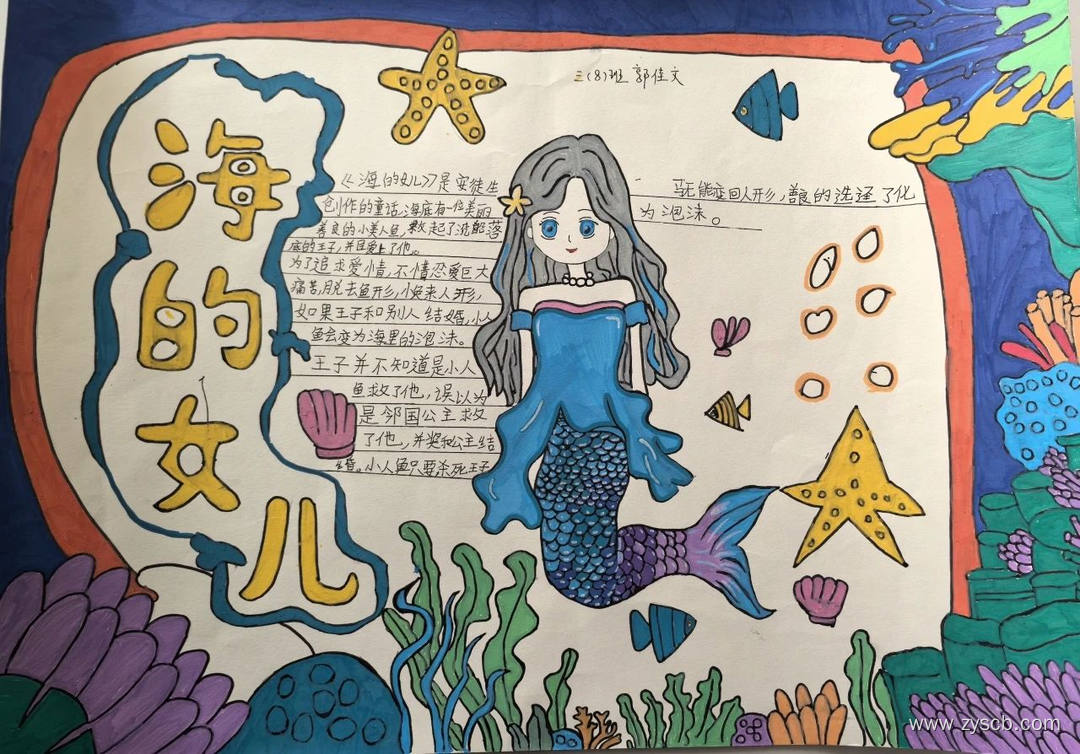 海的女儿
三(8)班 郭佳文
《海的女儿》是安徒生
创作的童话,海底有一位美丽
善良的小美人鱼,救起了沉船落
底的王子,并且爱上了他。
为了追求爱情,不惜忍受巨大
痛苦,脱去鱼形,换来人形,
如果王子和别人结婚,小人
鱼会变为海里的泡沫。
王子并不知道是小人
鱼救了他,误以为
是邻国公主救
了他,并和公主结
婚。小人鱼只要杀死王子
就能变回人形,善良的选择了化
为泡沫。
www.zyscb.com